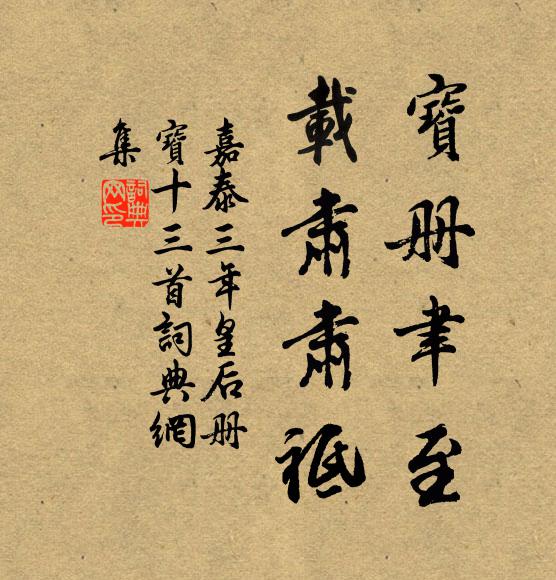 寶册聿至
載肅肅祗
嘉泰三年皇后册
寶十三首詞典網
集
詞典
网印